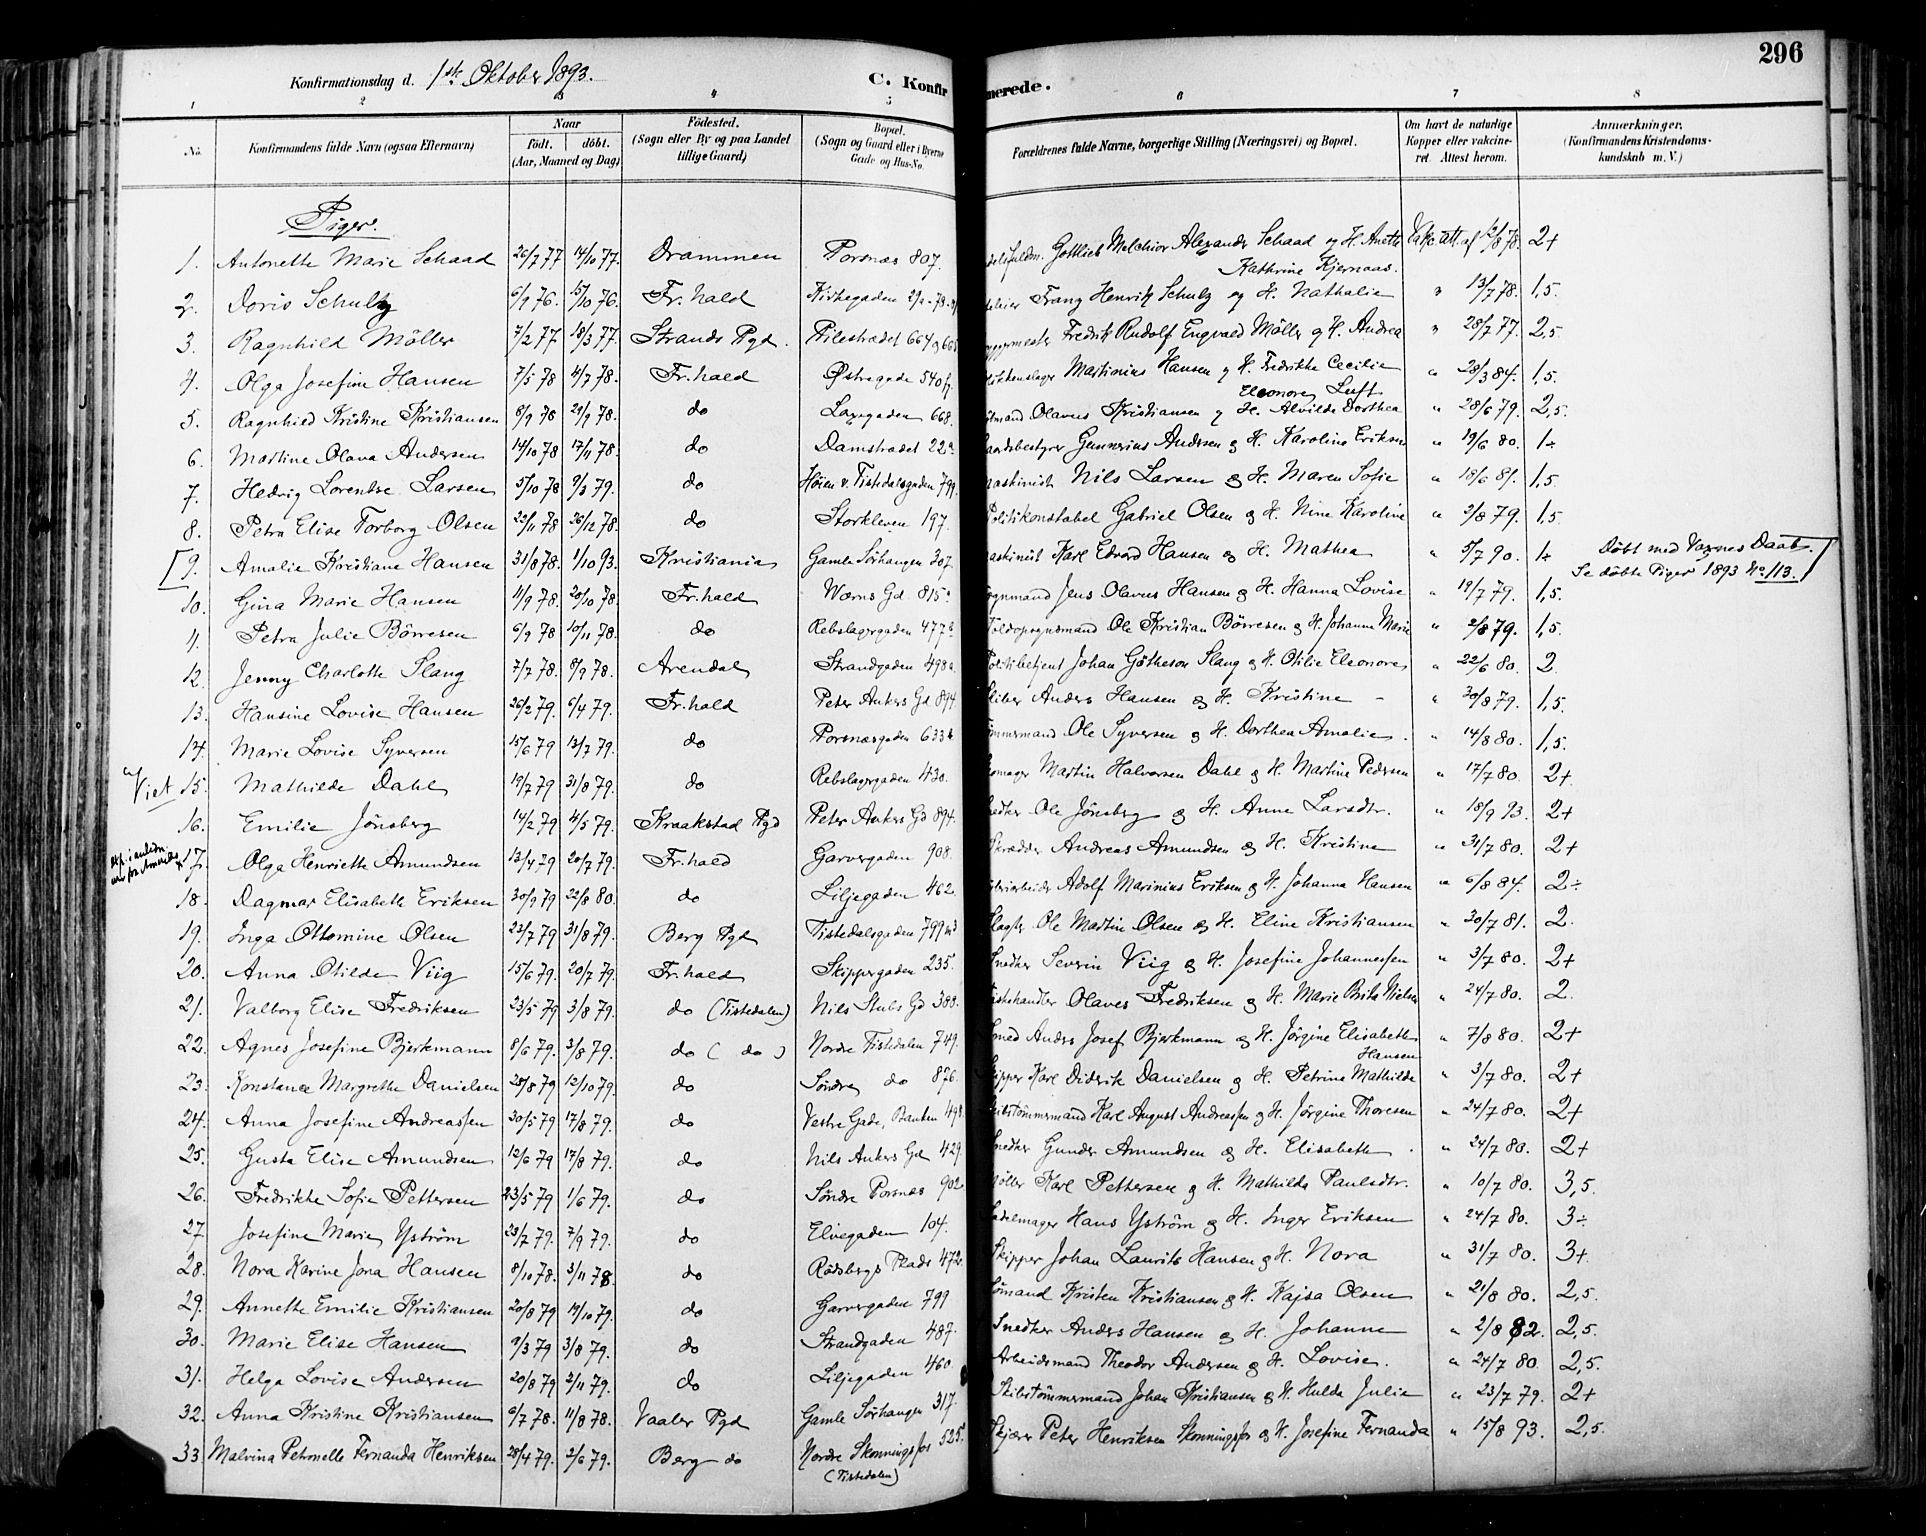 296
Konfirmationsdag d. 1ste Oktober 1893.
C. Konfirmerede.
1 2 3 4 5 6 7 8
No.
Konfirmandens fulde Navn (ogsaa Efternavn)
Naar
født. døbt.
(Aar, Maaned og Dag)
Fødested.
(Sogn eller By og paa Landet
tillige Gaard)
Bopæl.
(Sogn og Gaard eller i Byerne
Gade og Hus-No.
Forældrenes fulde Navne, borgerlige Stilling (Næringsvei) og Bopæl.
Om havt de naturlige
Kopper eller vakcine-
ret. Attest herom.
Anmærkninger.
(Konfirmandens Kristendoms-
kundskab m. V.)
Piger.
1. Antonette Marie Schaad 26/7 77 14/10 77. Drammen Porsnæs 807. Gottlieb Melchior Alexander Schaad og H. Anette Kathrine Kjernaas. Vakc. att. af 12/8 78. 2+
2. Doris Schulz 6/9 76. 15/10 76. Fr.hald Kirkegaden Frang Henrik Schulz og H. Nathalie " 13/7 78. 1,5.
3. Ragnhild Möller 7/2 77 18/3 77. Strands Pgd. Pilestrædet 664 Fredrik Rudolf Engvald Möller og H. Andrea " 28/7 77. 2,5
4. Olga Josefine Hansen 7/5 78 4/7 78. Fr.hald Østregade 540 Martinius Hansen og H. Fredrikke Cecilie Eleonore Luft " 28/3 84. 1,5.
5. Ragnhild Kristine Kristiansen 8/9 78 29/9 78. do Lagegaden 668. Olavus Kristiansen og H. Alvilde Dorthea " 28/6 79. 2,5.
6. Martine Olava Andersen 14/10 78 17/11 78. do Damstrædet 22a Gunnerius Andersen og H. Karoline Eriksen " 19/6 80. 1÷
7. Hedvig Lorentse Larsen 5/10 78 9/3 79. do Høien v. Tistedalsgaden 799. Maskinist Nils Larsen og H. Maren Sofie " 18/6 81. 1,5
8. Petra Elise Torborg Olsen 22/11 78 26/12 78. do Storkleven 197. Politikonstabel Gabriel Olsen og H. Nine Karoline " 2/8 79. 1,5
9. Amalie Kristiane Hansen 31/8 78. 1/10 93. Kristiania Gamle Sørhaugen 307. Maskinist Karl Edvard Hansen og H. Mathea " 5/7 90. 1÷ Døbt med Voxnes Daab.
Se døbte Piger 1893 No 113.
10. Gina Marie Hansen 11/9 78. 20/10 78. Fr.hald Wærns Gd 815a Jens Olavus Hansen og H. Hanna Lovise " 19/7 79. 1,5.
11. Petra Julie Börresen 6/9 78 10/11 78. do Rebslagergaden 477 Toldopsynsmand Ole Kristian Börresen og H. Johanne Marie " 2/8 79. 1,5.
12. Jenny Charlotte Slang 7/7 78. 8/9 78. Arendal Strandgaden 498a. Politibetjent Johan Götheson Slang og H. Otilie Eleonore " 22/6 80. 2.
13. Hansine Lovise Hansen 26/2 79. 6/4 79. Fr.hald Peter Ankers Gd 894 Skiber Anders Hansen og H. Kristine " 30/8 79. 1,5.
14. Marie Lovise Syversen 15/6 79 13/7 79. do Porsnæsgaden 633 Tömmermand Ole Syversen og H. Dorthea Amalie. " 14/8 80. 1,5.
Viet 15. Mathilde Dahl 19/7 79 31/8 79. do Rebslagergaden 430. Skomager Martin Halvorsen Dahl og H. Martine Pedersen " 17/7 80. 2+
16. Emilie Jönsberg 14/2 79 4/5 79. Kraakstad Pgd Peter Ankers Gd 894. Snedker Ole Jönsberg og H. Anne Larsdtr. " 18/9 93. 2+
17. Olga Henriette Amundsen 13/4 79 20/7 79. Fr.hald Garvergaden 908. Skrædder Andreas Amundsen og H. Kristine " 31/7 80. 2+
18. Dagmar Elisabeth Eriksen 30/9 79 22/8 80. do Liljegaden 462. Adolf Marinius Eriksen og H. Johanna Hansen " 6/8 84. 2÷
19. Inga Ottomine Olsen 23/7 79 31/8 79. Berg Pgd Tistedalsgaden 799 Slagter Ole Martin Olsen og H. Eline Kristiansen " 30/7 81. 2.
20. Anna Otilde Viig 15/6 79. 20/7 79. Fr.hald Skippergaden 235. Snedker Severin Viig og H. Josefine Johannessen " 3/7 80. 2+
21. Valborg Elise Fredriksen 23/5 79 3/8 79. do (Tistedalen) Nils Stubs Gd 388. Fiskehandler Olaves Fredriksen og H. Marie Brita Nielsen " 24/7 80. 2.
22. Agnes Josefine Bjerkmann 8/6 79. 3/8 79. do ( do ) Nordre Tistedalen 749. Smed Anders Josef Bjerkmann og H. Jörgine Elisabeth Hansen " 7/8 80. 2+
23. Konstance Margrethe Danielsen 28/8 79 12/10 79. do Söndre do 876. Skipper Karl Didrik Danielsen og H. Petrine Mathilde " 3/7 80. 2+
24. Anna Josefine Andreassen 30/5 79 17/8 79. do Vestre Gade, Banken 498. Skibstömmermand Karl August Andreassen og H. Jörgine Thoresen " 24/7 80. 2+
25. Gusta Elise Amundsen 12/6 79 17/8 79. do Nils Ankers Gd 429. Snedker Gunder Amundsen og H. Elisabeth. " 24/7 80. 2+
26. Fredrikke Sofie Pettersen 23/5 79 1/6 79. do Söndre Porsnæs 902. Möller Karl Pettersen og H. Mathilde Paulsdtr. " 10/7 80. 3,5.
27. Josefine Marie Yström 23/7 79. 7/9 79. do Elvegaden 104. Sadelmager Hans Yström og H. Inger Eriksen " 24/7 80. 3÷
28. Nora Karine Jona Hansen 8/10 78. 3/11 78. do Rödsbergs Plads 472. Skipper Johan Laurits Hansen og H. Nora " 31/7 80. 3+
29. Annette Emilie Kristiansen 20/8 79 19/10 79. do Garvergaden 799 Sömand Kristen Kristiansen og H. Kajsa Olsen " 21/8 80. 2,5.
30. Marie Elise Hansen 9/3 79 3/8 79. do Strandgaden 487. Snedker Anders Hansen og H. Johanne " 2/8 82. 2,5.
31. Helga Lovise Andersen 20/8 79 2/11 79. do Liljegaden 460. Arbeidsmand Theodor Andersen og H. Lovise. " 24/7 80. 2,5.
32. Anna Kristine Kristiansen 6/7 78. 11/8 78. Vaaler Pgd Gamle Sørhaugen 317. Skibstömmermand Johan Kristiansen og H. Hulda Julie " 23/7 79. 2+
33 Malvina Petronelle Fernanda Henriksen 28/4 79. 2/6 79. Berg do Nordre Skonningsfos 525. (Tistedalen) Skjærer Peter Henriksen Skonningsfos og H. Josefine Fernanda " 15/8 93. 2,5.